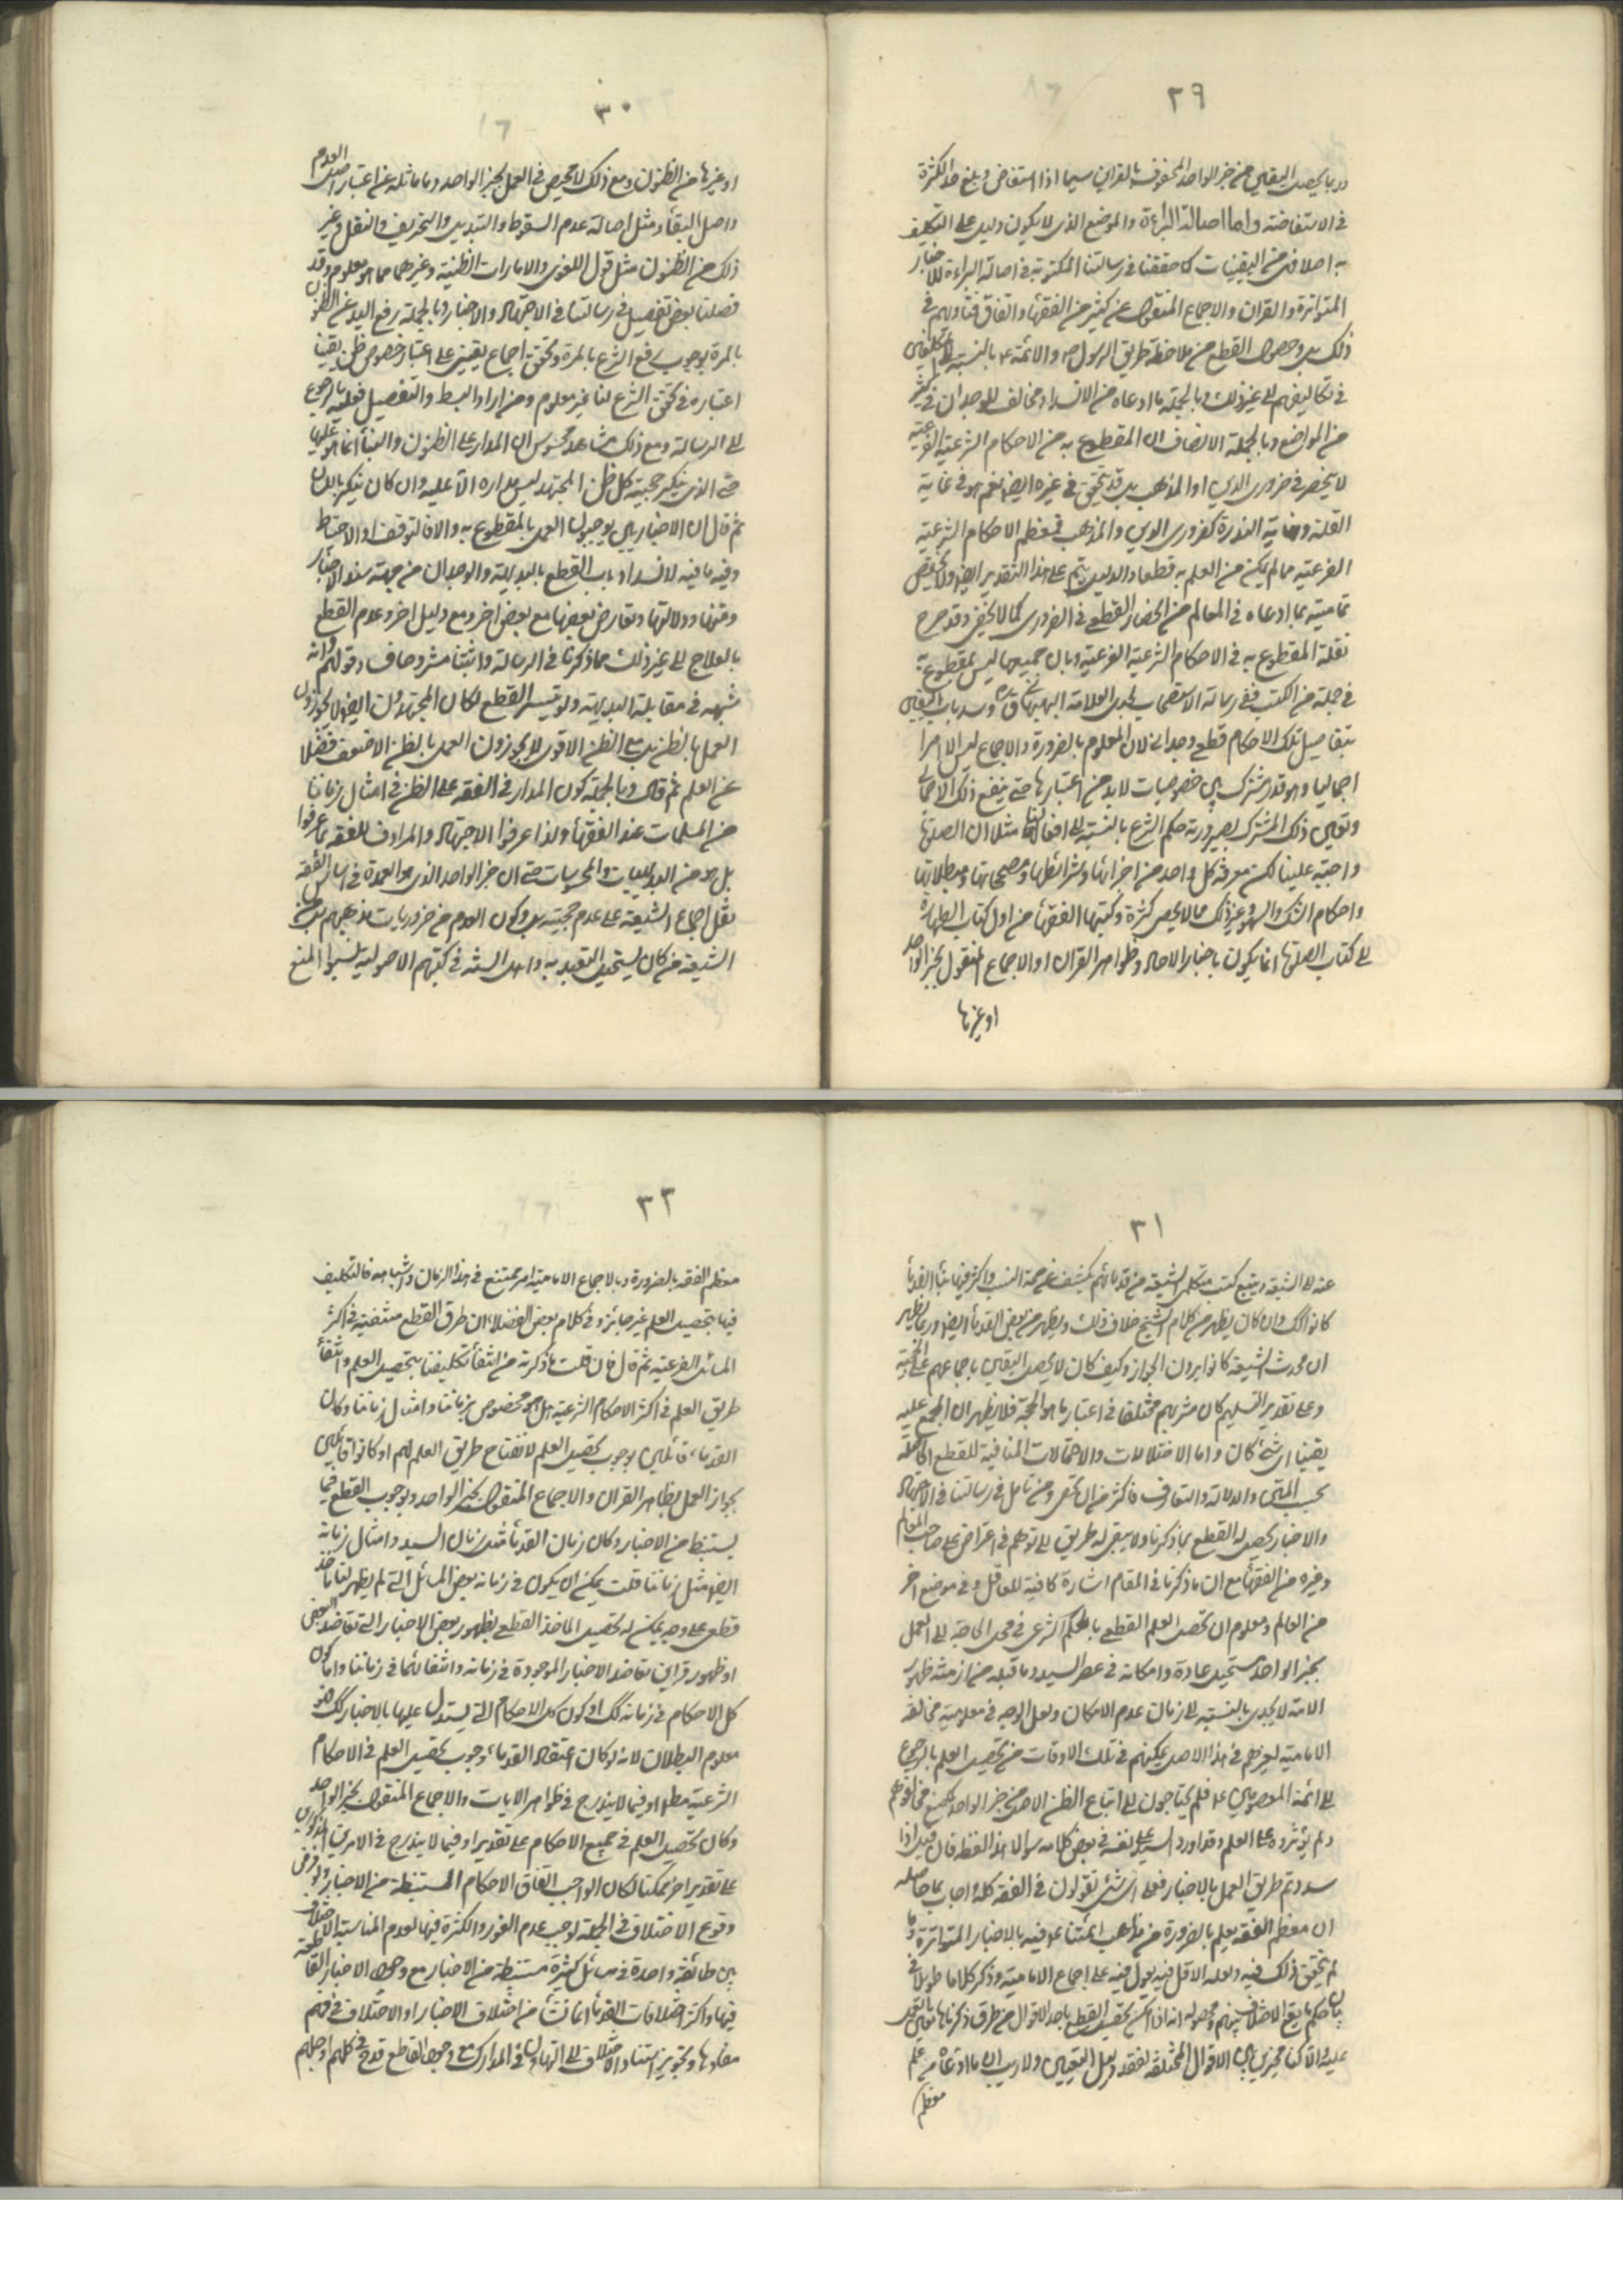 ٢٩
وربما يحصل اليقين من خبر الواحد المحفوف بالقراين سيما اذا استفاض وبلغ حد الكثرة
في الاستفاضة واما اصالة البراءة والموضع الذى لا يكون دليل على التكليف
به اصلا فهى من اليقينيات كما حققنا فى رسالتنا المكتوبة فى اصالة البراءة للاخبار
المتواترة والقران والاجماع المنقول عن كثير من الفقهاء واتفاق فتاويهم فى
ذلك بل وحصول القطع من ملاحظة طريق الرسول ص والائمة ع بالنسبة الى المكلفين
فى تكاليفهم الى غير ذلك وبالجملة ما ادعاه من الانسداد مخالف للوجدان فى كثير
من المواضع وبالجملة الانصاف ان المقطوع به من الاحكام الشرعية الفرعية
لا ينحصر فى ضرورى الدين او المذهب بل قد يتحقق فى غيره ايضا نعم هو فى غاية
القلة ونهاية الندرة كضرورى الدين والمذهب فمعظم الاحكام الشرعية
الفرعية مما لم يمكن العلم به قطعا والدليل يتم على هذا التقدير ايضا ولا يختص
تماميته بما ادعاه فى المعالم من انحصار القطع فى الضرورى كما لا يخفى وقد صرح
بقلة المقطوع به فى الاحكام الشرعية الفرعية وبان جميعها ليس بمقطوعة
فى جملة من الكتب ففى رسالة الاستصحاب لجدى العلامة البهبهانى قده وسد باب اليقين
بتفاصيل تلك الاحكام قطعى وجدانى لان المعلوم بالضرورة والاجماع ليس الا امرا
اجماليا وهو قدر مشترك بين خصوصيات لا بد من اعتبارها حتى ينفع ذلك الاجمالى
وتعين ذلك المشترك بصيرورته حكم الشرع بالنسبة الى افعالنا مثلا ان الصلوة
واجبة علينا لكن معرفة كل واحد من اجزائها وشرائطها ومصححاتها ومبطلاتها
واحكام الشك والسهو وغير ذلك مما لا يحصى كثرة وكتبها الفقهاء من اول كتاب الطهارة
الى كتاب الصلوة انما يكون باخبار الاحاد وظواهر القران او الاجماع المنقول بخبر الواحد
او غيرها
٣٠
او غيرها من الظنون ومع ذلك لا محيص فى العمل بخبر الواحد وما ماثله عن اعتبار اصل العدم
واصل البقاء ومثل اصالة عدم السقوط والتبديل والتحريف والنقل وغير
ذلك من الظنون مثل قول اللغوى والامارات الظنية وغيرهما مما هو معلوم وقد
فصلنا بعض تفصيل فى رسالتنا فى الاجتهاد والاخبار وبالجملة رفع اليد عن الظنون
بالمرة يوجب رفع الشرع بالمرة وتحقق اجماع يقينى على اعتبار خصوص ظن يقينا
اعتباره فى تحقق الشرع لنا غير معلوم ومن اراد البسط والتفصيل فعليه بالرجوع
الى الرسالة ومع ذلك مشاهد محسوس ان المدار على الظنون والبناء انما هو عليها
حتى الذى ينكر حجية كل ظن المجتهد ليس مداره الا عليه وان كان ينكر باللسان
ثم قال ان الاخباريين يوجبون العمل بالمقطوع به والا فالتوقف او الاحتياط
وفيه ما فيه لانسداد باب القطع بالبديهة والوجدان من جهة سند الاخبار
ومتنها ودلالتها وتعارض بعضها مع بعض اخر ومع دليل اخر وعدم القطع
بالعلاج الى غير ذلك مما ذكرنا فى الرسالة واثبتنا مشروحا فساد قولهم وانه
شبهة فى مقابلة البديهة ولو تيسر القطع لكان المجتهدون ايضا لا يجوزون
العمل بالظن بل مع الظن الاقوى لا يجوزون العمل بالظن الاضعف فضلا
عن العلم ثم قال وبالجملة كون المدار فى الفقه على الظن فى امثال زماننا
من المسلمات عند الفقهاء ولذا عرفوا الاجتهاد والمرادف للفقه بما عرفوا
بل هو من البديهيات والمحسوسات حتى ان خبر الواحد الذى هو العمدة فى اساس الفقه
نقل اجماع الشيعة على عدم حجيته بل وكون العدم من ضروريات مذهبهم بل من
الشيعة من كان يستحيل التعبد به واهل السنة فى كتبهم الاصولية نسبوا المنع
٣١
عنه الى الشيعة وتتبع كتب متكلمى الشيعة من قدمائهم يكشف عن صحة النسب واكثر فقهائنا القدماء
كانوا كك وان كان يظهر من كلام الشيخ خلاف ذلك ويظهر من بعض القدماء ايضا وربما يظهر
ان محدث الشيعة كانوا يرون الجواز وكيف كان لا يحصل اليقين باجماعهم على الحجية
وعلى تقدير التسليم كان مشربهم مختلفا فى اعتبار ما هو الحجة فلا يظهر ان المجمع عليه
يقينا اى شئ كان واما الاختلالات والاحتمالات المنافية للقطع الحاصلة
بحسب المتن والدلالة والتعارض فاكثر من ان تحصى ومن تامل فى رسالتنا فى الاجتهاد
والاخبار يحصل له القطع بما ذكرنا ولا يبقى له طريق الى توهم فى اعتراض على صاحب المعالم
وغيره من الفقهاء مع ان ما ذكرنا فى المقام اشارة كافية للعاقل وفى موضع اخر
من العالم ومعلوم ان تحصيل العلم القطعى بالحكم الشرعى فى محل الحاجة الى العمل
بخبر الواحد مستحيل عادة وامكانه فى عصر السيد وما قبله من ازمنة ظهور
الائمة لا يجدى بالنسبة الى زمان عدم الامكان ولعل الوجه فى معلومية مخالفة
الامامية لغيرهم فى هذا الاصل تمكنهم فى تلك الاوقات من تحصيل العلم بالرجوع
الى ائمة المعصومين ع فلم يحتاجون الى اتباع الظن الحاصل من خبر الواحد كصنيع مخالفوهم
ولم يؤثروه على العلم وقد اورد السيد على نفسه فى بعض كلامه سوالا هذا لفظه فان قيل اذا
سددتم طريق العمل بالاخبار فعلى اى شئ تعولون فى الفقه كله واجاب بما حاصله
ان معظم الفقه يعلم بالضرورة من مذاهب ائمتنا ع فيه بالاخبار المتواترة وما
لم يتحقق ذلك فيه ولعله الاقل فيه يعول فيه على اجماع الامامية وذكر كلاما طويلا فى
بيان حكم ما يقع الاختلاف بينهم ومحصوله انه اذا امكن تحصيل القطع باحد الاقوال من طرق ذكرناها تعين العمل
عليه والا كنا مخيرين بين الاقوال المختلفة لفقد دليل التعيين ولا ريب ان ما ادعاه من علم
معظم
٣٢
معظم الفقه بالضرورة وبالاجماع الامامية امر ممتنع فى هذا الزمان واشباهه فالتكليف
فيها بتحصيل العلم غير جائز وفى كلام بعض الفضلاء ان طرق القطع منتفية فى اكثر
المسائل الفرعية ثم قال فان قلت ما ذكرته من انتفاء تكليفنا بتحصيل العلم وانتفاء
طريق العلم فى اكثر الاحكام الشرعية هل هو مخصوص بزماننا وامثال زماننا وكان
القدماء قائلين بوجوب تحصيل العلم لانفتاح طريق العلم لهم او كانوا قائلين
بجواز العمل بظاهر القران والاجماع المنقول بخبر الواحد وبوجوب القطع فيما
يستنبط من الاخبار وكان زمان القدماء مثل زمان السيد وامثال زمانه
ايضا مثل زماننا قلت يمكن ان يكون فى زمانه بعض المسائل التى لم يظهر لنا ماخذ
قطعى على وجه يمكن له تحصيل الماخذ القطعى بظهور بعض الاخبار التى تعاضد البعض
او ظهور قراين تعاضد الاخبار الموجودة فى زمانه وانتفائها فى زماننا واما كون
كل الاحكام فى زمانه كك او كون كل الاحكام التى يستدل عليها بالاخبار كك فهو
معلوم البطلان لانه لو كان اعتقاد القدماء وجوب تحصيل العلم فى الاحكام
الشرعية مطلقا او فيما لا يندرج فى ظواهر الايات والاجماع المنقول بخبر الواحد
وكان تحصيل العلم فى جميع الاحكام على تقدير او فيما لا يندرج فى الامرين المذكورين
على تقدير اخر ممكنا لكان الواجب اتفاق الاحكام المستنبطة من الاخبار ولو فرض
وقوع الاختلاف فى الجملة لوجب عدم الوفور والكثرة فيها لعدم المناسبة الاختلاف
بين طائفة واحدة فى مسائل كثيرة مستنبطة من الاخبار مع وجود الاخبار القاطعة
فيها واكثر اختلافات القدماء انما نشأ من اختلاف الاخبار او الاختلاف فى فهم
مفادها وتجويز استناد الاختلاف الى التهاون فى المدارك مع وجود القاطع قدح فى كلهم او جلهم